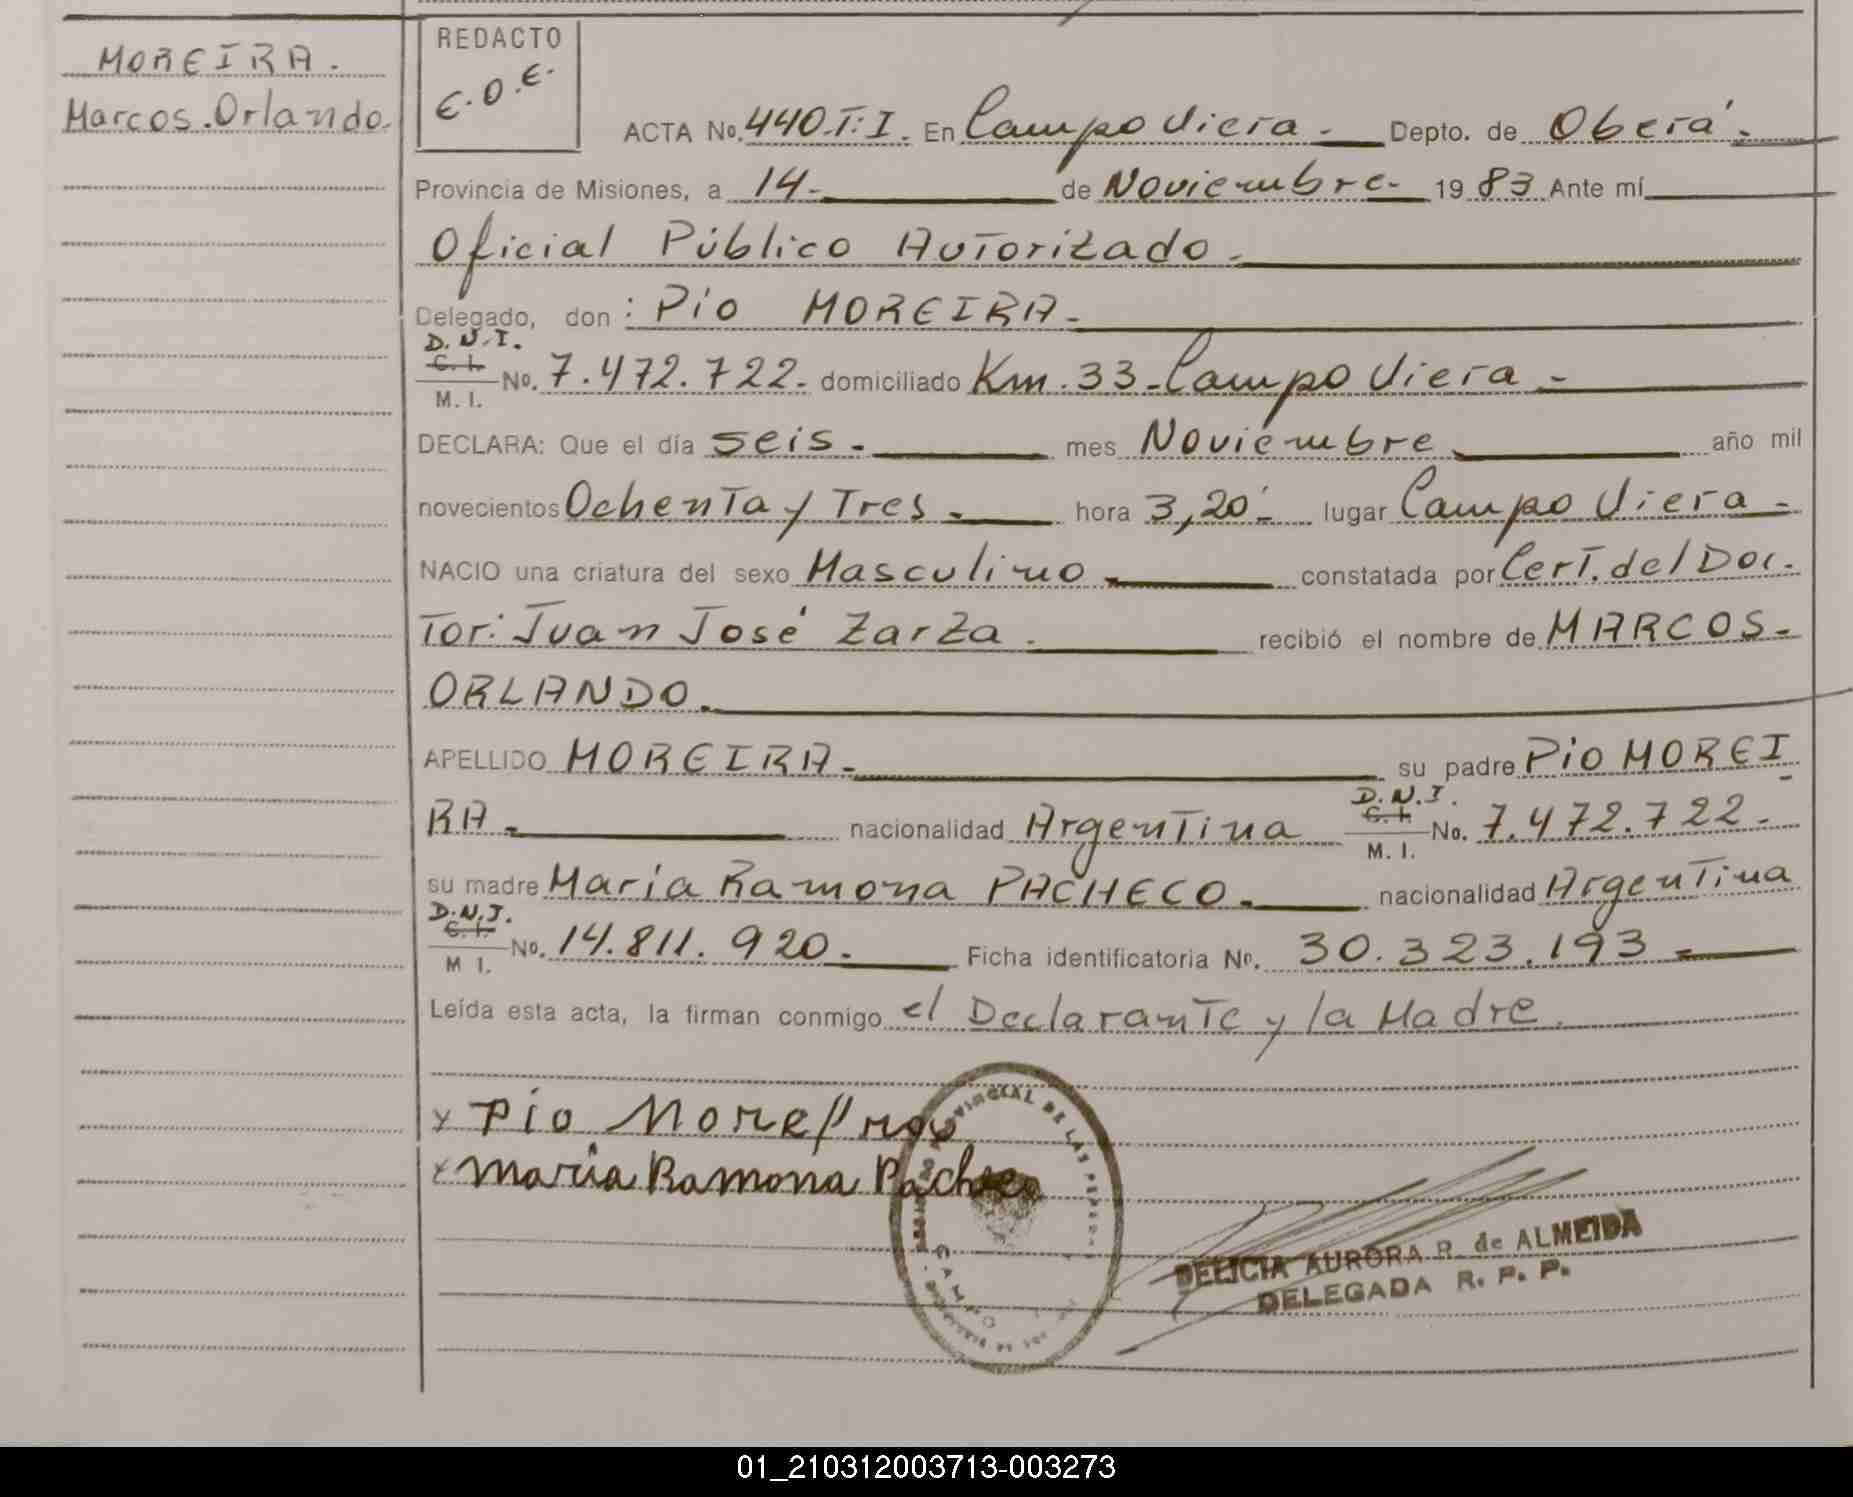 MOREIRA.
Marcos.Orlando.
REDACTO
E.O.E.
ACTA No. 440.T:I. En Campo Viera.- Depto. de Oberá.-
Provincia de Misiones, a 14.- de Noviembre.- 1983 Ante mí
Oficial Público Autorizado.-
Delegado, don : Pio MOREIRA.-
D.N.I.
C. I.
M. I.
No. 7.472.722.- domiciliado Km.33-Campo Viera.-
DECLARA: Que el día seis.- mes Noviembre año mil
novecientos Ochenta y Tres.- hora 3,20'- lugar Campo Viera.-
NACIO una criatura del sexo Masculino.- constatada por Cert. del Doc-
Tor: Juan José Zarza.- recibió el nombre de MARCOS-
ORLANDO.-
APELLIDO MOREIRA.- su padre Pio MOREI
RA.- nacionalidad Argentina D.N.I. C. I. M. I. No. 7.472.722.-
su madre María Ramona PACHECO.- nacionalidad Argentina
D.N.I.
C. I.
M I.
No. 14.811.920.- Ficha identificatoria No. 30.323.193.-
Leída esta acta, la firman conmigo el Declarante y la Madre.
x Pio Moreira
x maria Ramona Pacheco
PROVINCIAL DE LAS PERSONAS
CAMPO
DELICIA AURORA R. de ALMEIDA
DELEGADA R. P. P.
01_210312003713-003273